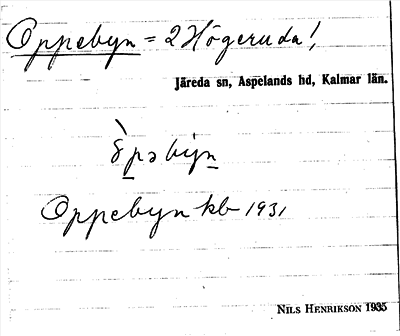 Oppebyn = 2 Högeruda!,
Järeda sn, Aspelands hd, Kalmar län.
òpəbyn
Oppebyn kb 1931
NILS HENRIKSON 1935